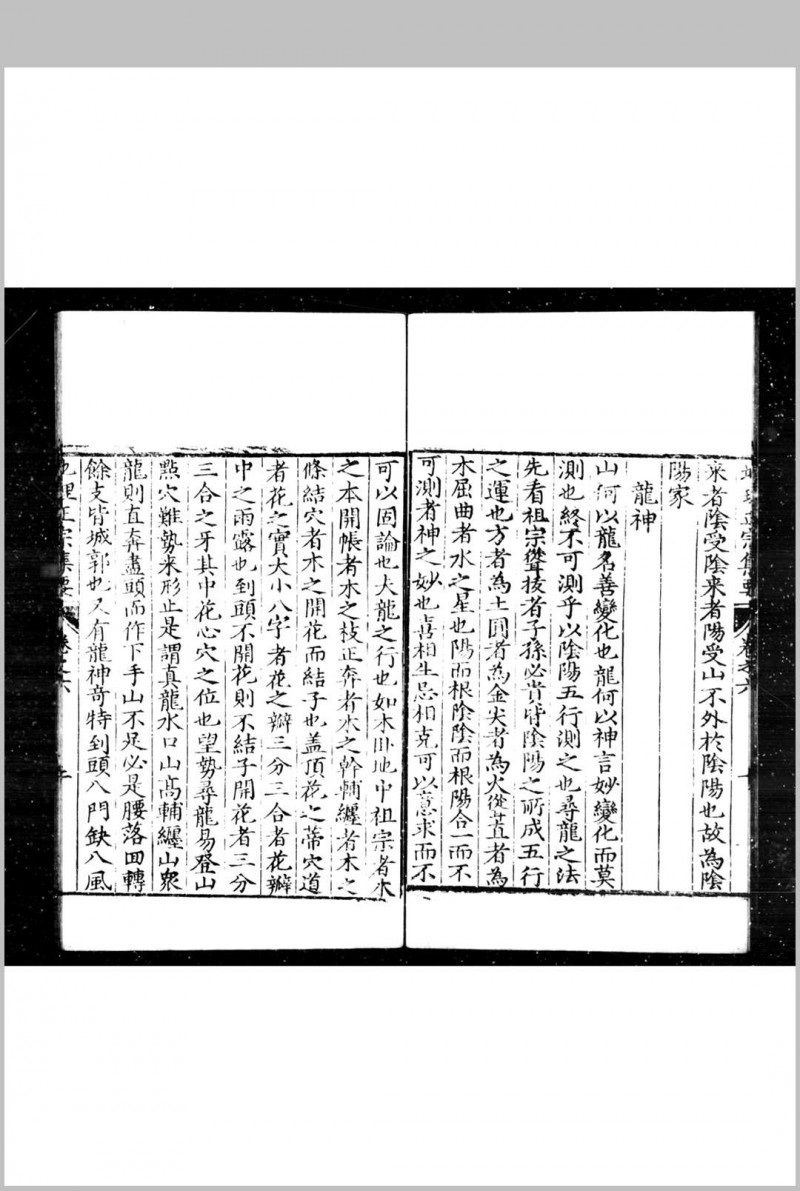 来者陰受陰来者陽受山不外於陰陽也故為陰
陽家
龍神
山何以龍名善變化也龍何以神言妙變化而莫
測也終不可測乎以陰陽五行測之也尋龍之法
先看祖宗聳拔者子孫必貴皆陰陽之所成五行
之運也方者為土圓者為金尖者為火從直者為
木屈曲者水之星也陽而根陰陰而根陽合一而不
可測者神之妙也喜相生忌相克可以意求而不
可以固論也夫龍之行也如木卧地中祖宗者木
之本開帳者木之枝正奔者木之幹輔纏者木之
條結穴者木之開花而結子也蓋頂花之蒂穴道
者花之實大小八字者花之瓣三分三合者花瓣
中之雨露也到頭不開花則不結子開花者三分
三合之牙其中花心穴之位也望勢尋龍易登山
點穴難勢来形止是謂真龍水口山高輔纏山衆
龍則直奔盡頭而作下手山不足必是腰落囬轉
餘支皆城郭也又有龍神竒特到頭八門缺八風
地理正宗集要 卷之六